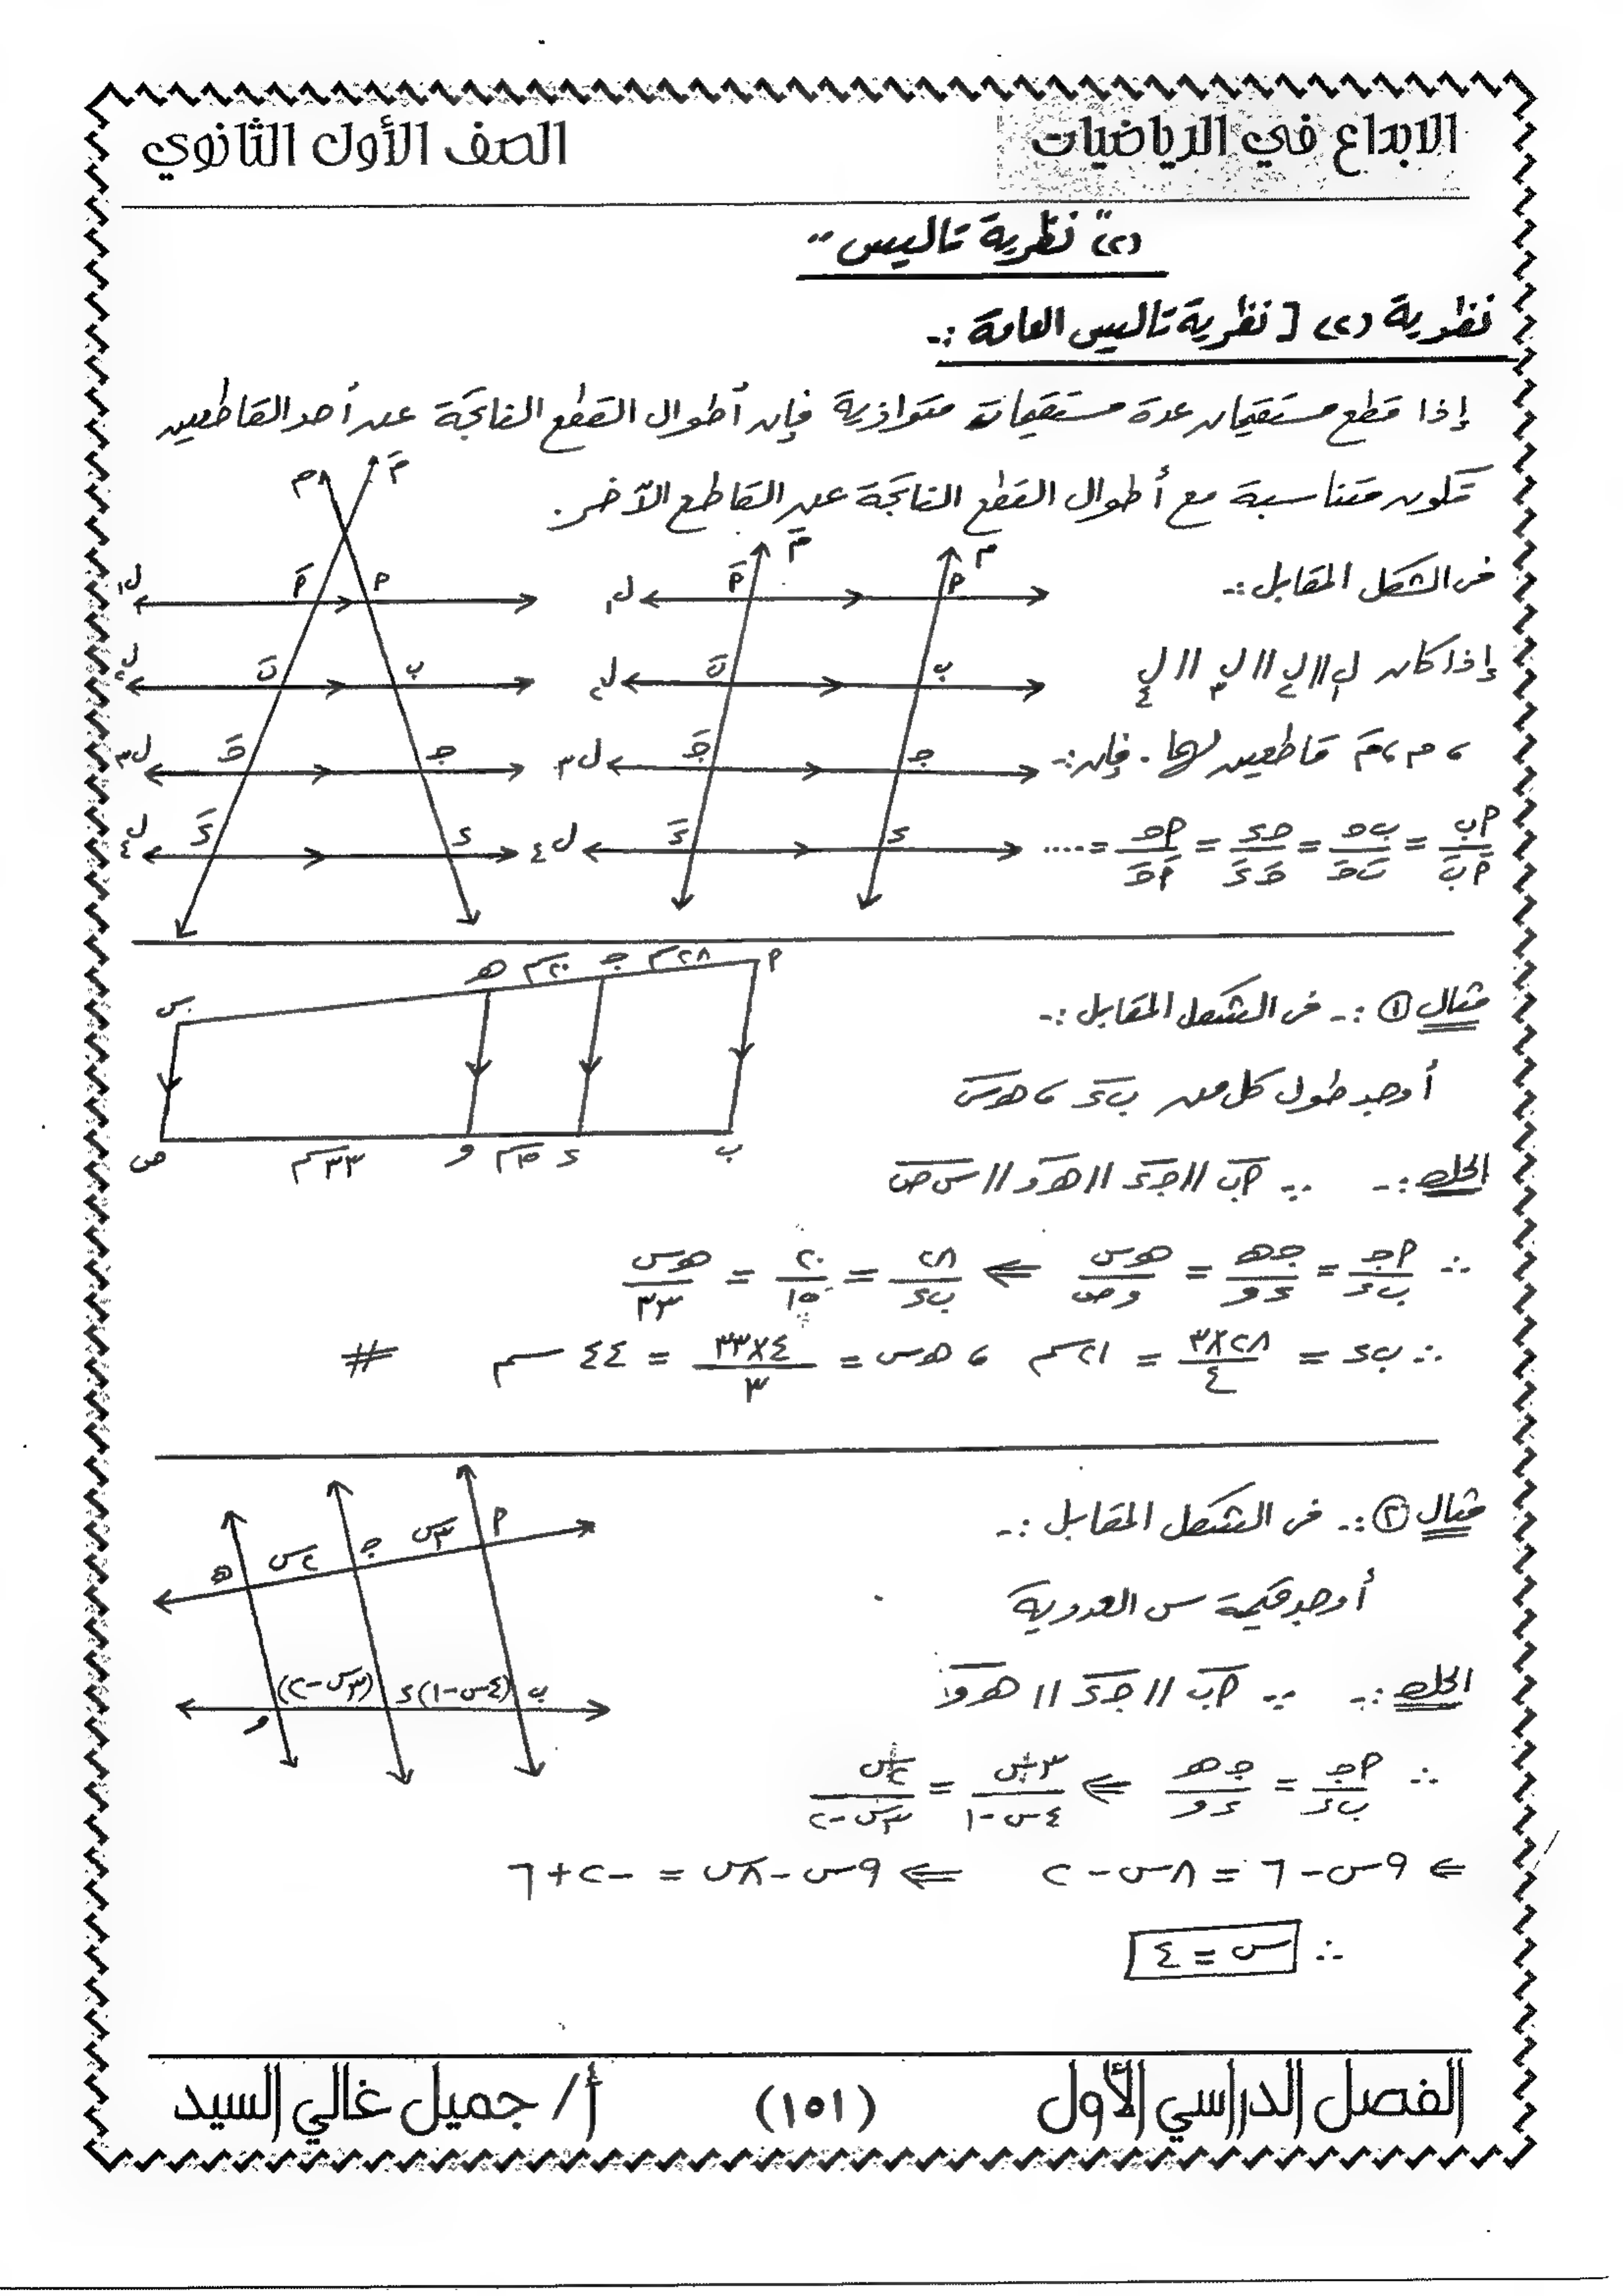 الابداع في الرياضيات
الصف الأول الثانوي
(٢) " نظرية تاليس "
نظرية (٢) [ نظرية تاليس العامة :-
إذا قطع مستقيمان عدة مستقيمات متوازية فإن أطوال القطع الناتجة على أحد القاطعين
تكون متناسبة مع أطوال القطع الناتجة على القاطع الآخر.
فى الشكل المقابل :-
إذا كان ل١ // ل٢ // ل٣ // ل٤
، م ، مَ قاطعين لها . فإن :-
أب/أَبَ = بجـ/بَجـَ = جـء/جـَءَ = أجـ/أَجـَ = ....
م مَ
أَ أ ل١
بَ ب ل٢
جـَ جـ ل٣
ءَ ء ل٤
مَ م
أَ أ ل١
بَ ب ل٢
جـَ جـ ل٣
ءَ ء ل٤
مثال ① :- فى الشكل المقابل :-
أوجد طول كل من بء ، هـس
س هـ ٢٠سم جـ ٢٨سم أ
ص ٣٣سم و ١٥سم ء ب
الحل :- ∵ أب // جـء // هـو // س ص
∴ أجـ/بء = جـهـ/ءو = هـس/وص ⇐ ٢٨/بء = ٢٠/١٥ = هـس/٣٣
∴ بء = ٣×٢٨/٤ = ٢١سم ، هـس = ٣٣×٤/٣ = ٤٤ سم #
مثال ② :- فى الشكل المقابل :-
أوجد قيمة س العددية
هـ ٢س جـ ٣س أ
و (٣س-٢) ء (٤س-١) ب
الحل :- ∵ أب // جـء // هـو
∴ أجـ/بء = جـهـ/ءو ⇐ ٣س/٤س-١ = ٢س/٣س-٢
⇐ ٩س - ٦ = ٨س - ٢ ⇐ ٩س - ٨س = -٢ + ٦
∴ س = ٤
الفصل الدراسي الأول
(١٥١)
أ/ جميل غالي السيد